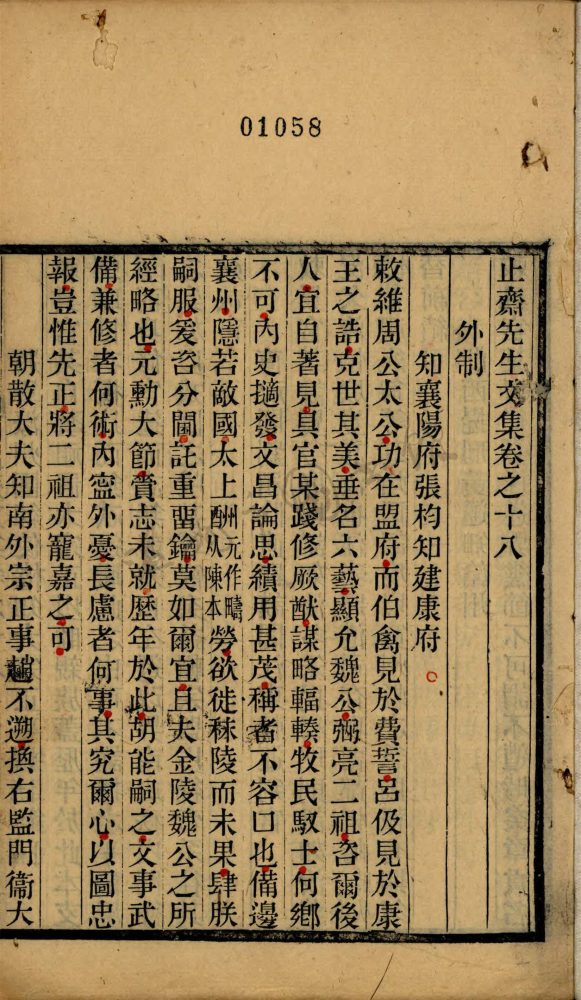 01058
止齋先生文集卷之十八
外制
知襄陽府張枃知建康府
敕維周公太公功在盟府而伯禽見於費誓呂伋見於康
王之誥克世其美垂名六藝顯允魏公弼亮二祖咨爾後
人宜自著見具官某踐修厥猷謀略輻輳牧民馭士何鄉
不可內史擿發文昌論思績用甚茂稱者不容口也備邊
襄州隱若敵國太上酬元作疇从陳本勞欲徙秣陵而未果肆朕
嗣服爰咨分閫託重畱鑰莫如爾宜且夫金陵魏公之所
經略也元勳大節賫志未就歷年於此胡能嗣之文事武
備兼修者何術內寍外憂長慮者何事其究爾心以圖忠
報豈惟先正將二祖亦寵嘉之可
朝散大夫知南外宗正事趙不遡換右監門衞大